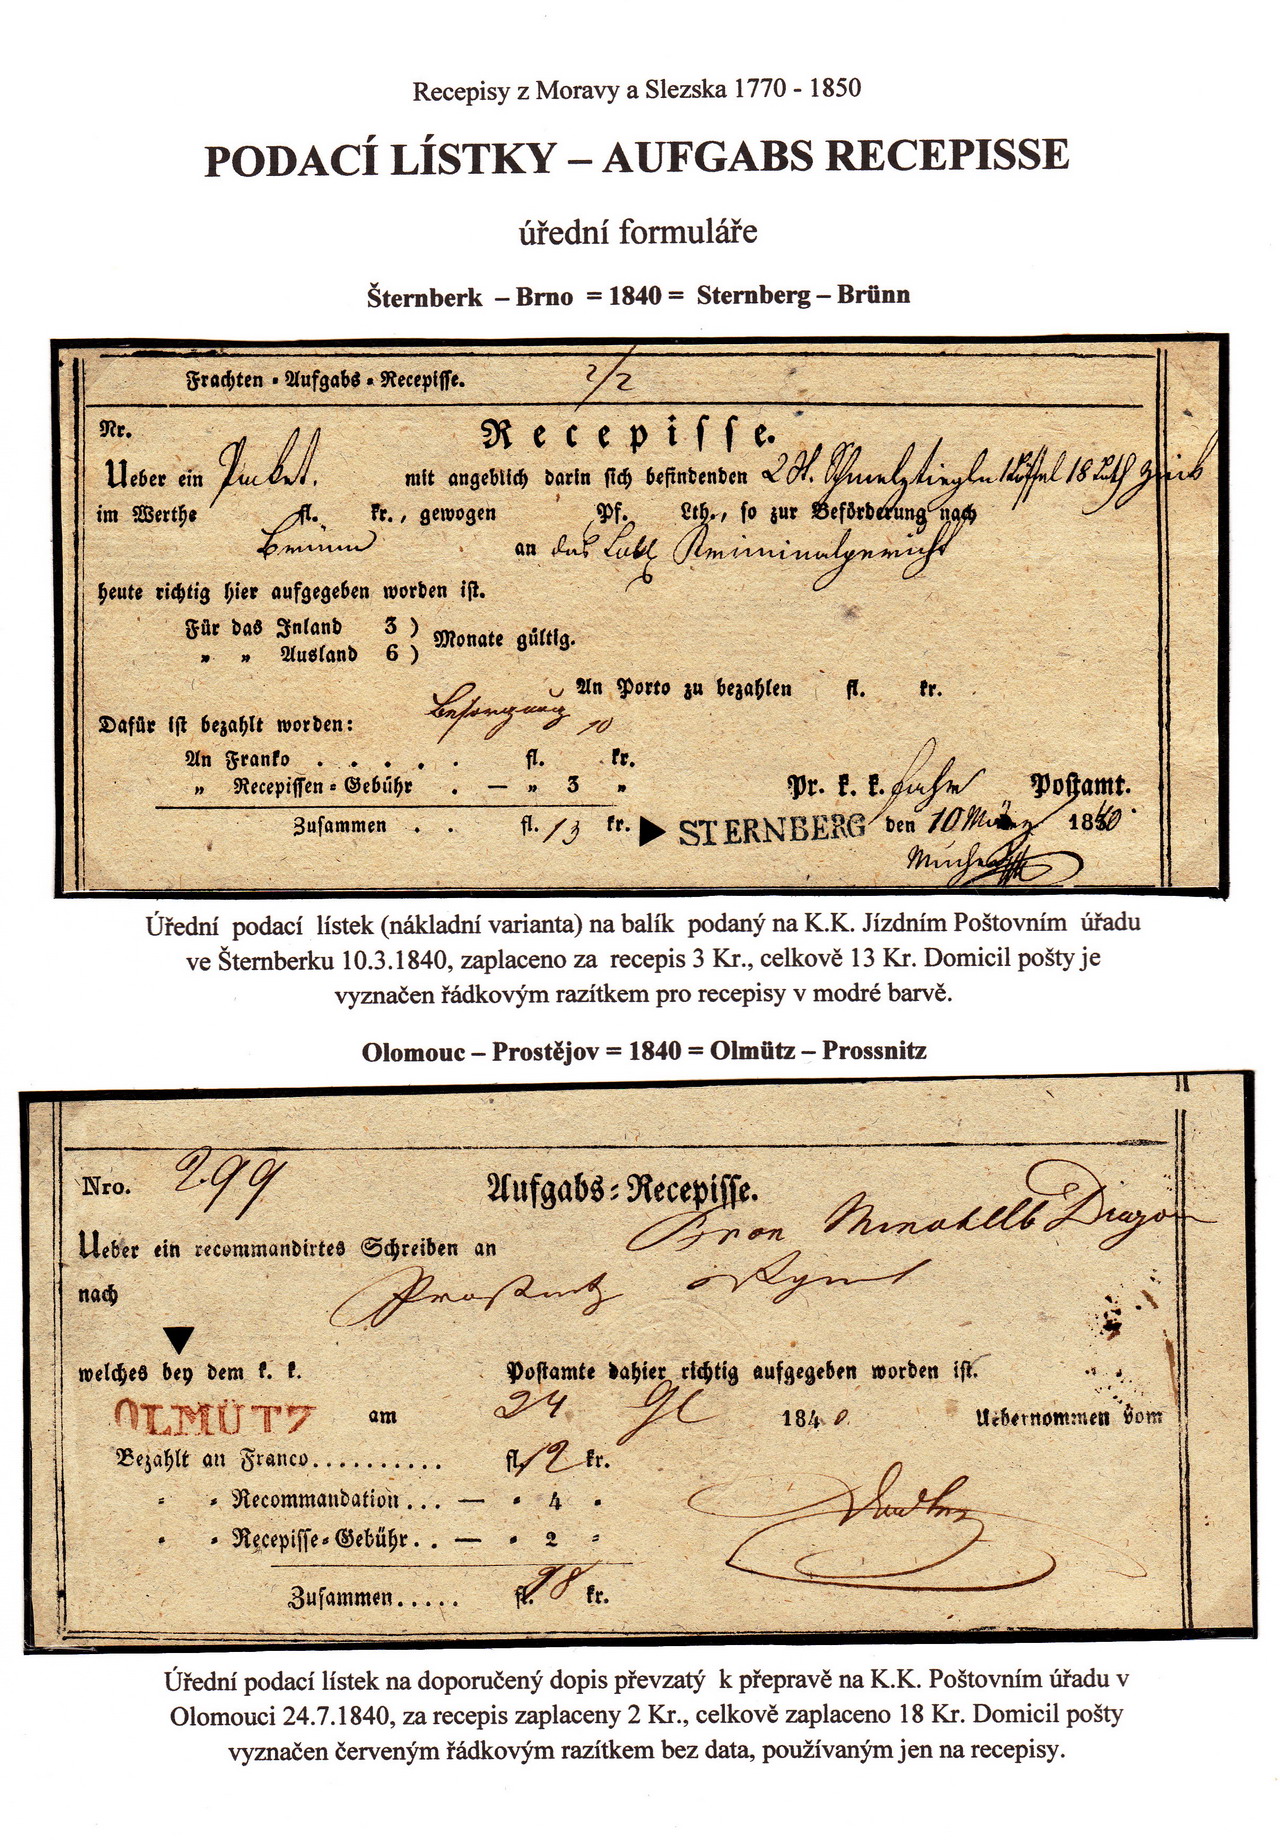 Recepisy z Moravy a Slezska 1770 - 1850
PODACÍ LÍSTKY – AUFGABS RECEPISSE
úřední formuláře
Šternberk – Brno = 1840 = Sternberg – Brünn
Frachten-Aufgabs-Recepisse.
2/2
Nr.
Recepisse.
Ueber ein Packet. mit angeblich darin sich befindenden 2 St. Schmelztiegln 18 Loth
im Werthe fl. kr., gewogen Pf. Lth., so zur Beförderung nach
Brünn an das Löbl Kriminalgericht
heute richtig hier aufgegeben worden ist.
Für das Inland 3 )
Monate gültig.
„ „ Ausland 6 )
An Porto zu bezahlen fl. kr.
Dafür ist bezahlt worden: 10
An Franko . . . . . fl. kr.
„ Recepissen-Gebühr . — „ 3 „ Pr. k. k. fahr Postamt.
Zusammen . . fl. 13 kr. STERNBERG den 10 März 1840
Úřední podací lístek (nákladní varianta) na balík podaný na K.K. Jízdním Poštovním úřadu
ve Šternberku 10.3.1840, zaplaceno za recepis 3 Kr., celkově 13 Kr. Domicil pošty je
vyznačen řádkovým razítkem pro recepisy v modré barvě.
Olomouc – Prostějov = 1840 = Olmütz – Prossnitz
Nro. 299 Aufgabs-Recepisse.
Ueber ein recommandirtes Schreiben an
nach Proßnitz
welches bey dem k. k. Postamte dahier richtig aufgegeben worden ist.
OLMÜTZ am 24 1840. Uebernommen vom
Bezahlt an Franco.......... fl. 12 kr.
„ „ Recommandation... — „ 4 „
„ „ Recepisse-Gebühr. . — „ 2 „
Zusammen..... fl. 18 kr.
Úřední podací lístek na doporučený dopis převzatý k přepravě na K.K. Poštovním úřadu v
Olomouci 24.7.1840, za recepis zaplaceny 2 Kr., celkově zaplaceno 18 Kr. Domicil pošty
vyznačen červeným řádkovým razítkem bez data, používaným jen na recepisy.